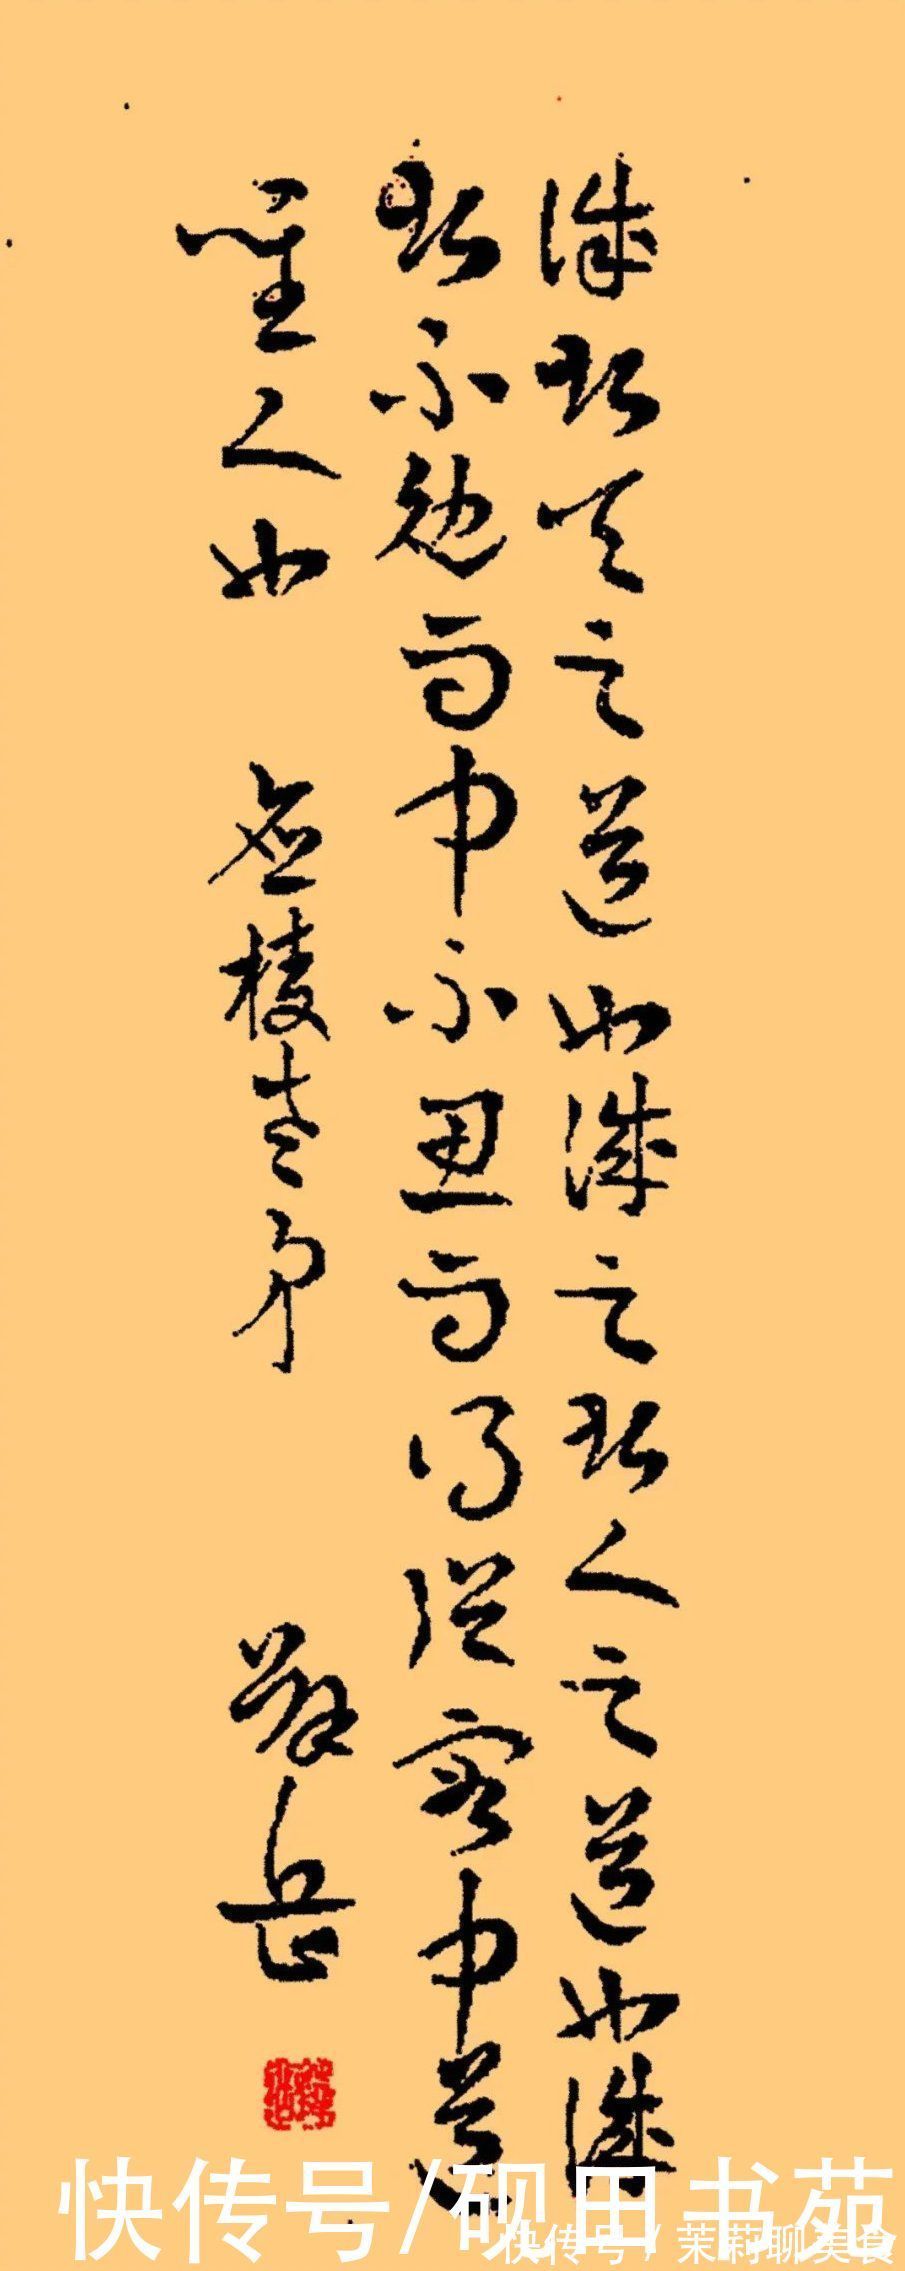 誠者天之道也誠之者人之道也誠
者不勉而中不思而得從容中道
聖人也 棱弟 薛岳
快传号/砚田书苑
快传号 / 茉莉聊美食